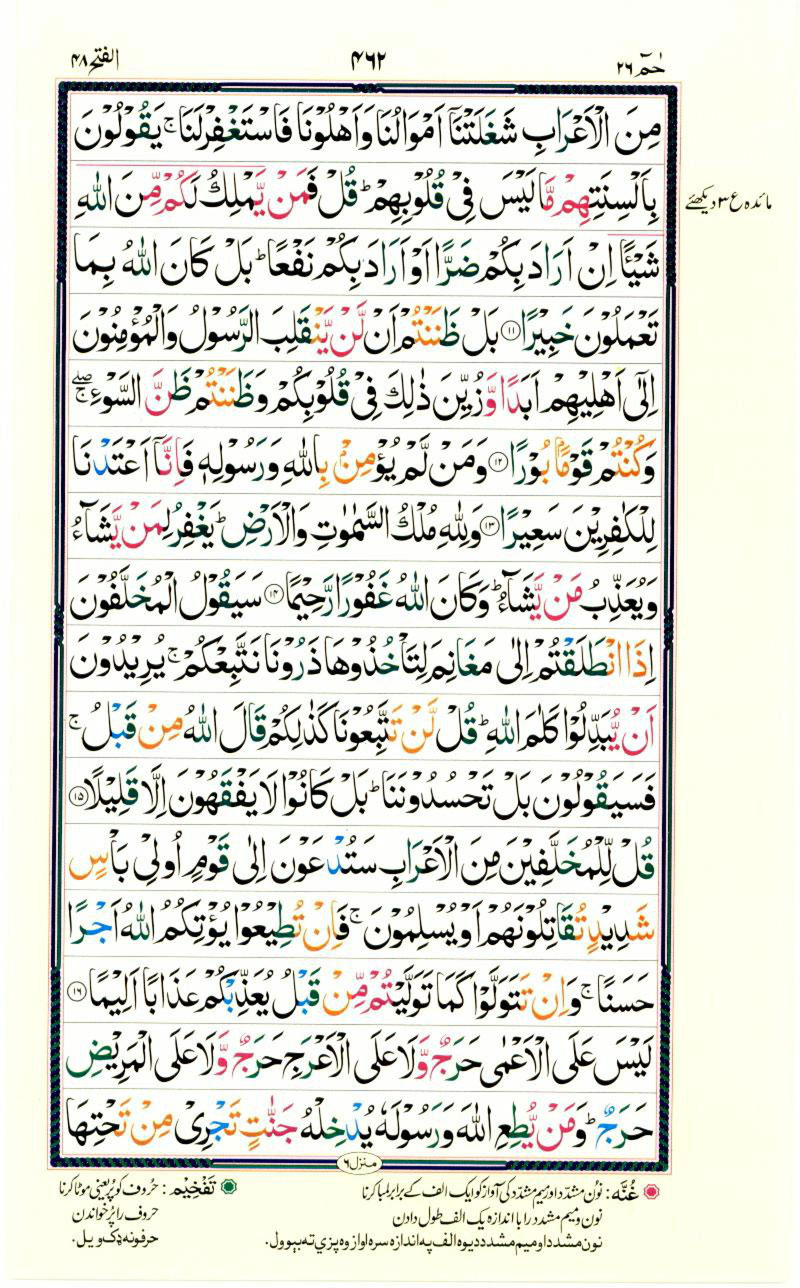 حٰمٓ ۲۶
۴۶۲
الفتح ۴۸
مِنَ الْاَعْرَابِ شَغَلَتْنَاۤ اَمْوَالُنَا وَاَهْلُوْنَا فَاسْتَغْفِرْلَنَا ۚ يَقُوْلُوْنَ
بِاَلْسِنَتِهِمْ مَّا لَيْسَ فِيْ قُلُوْبِهِمْ ؕ قُلْ فَمَنْ يَّمْلِكُ لَكُمْ مِّنَ اللّٰهِ
مائدہ ع ۳ دیکھئے
شَيْـًٔا اِنْ اَرَادَ بِكُمْ ضَرًّا اَوْ اَرَادَ بِكُمْ نَفْعًا ؕ بَلْ كَانَ اللّٰهُ بِمَا
تَعْمَلُوْنَ خَبِيْرًا ۝۱۱ بَلْ ظَنَنْتُمْ اَنْ لَّنْ يَّنْقَلِبَ الرَّسُوْلُ وَالْمُؤْمِنُوْنَ
اِلٰۤى اَهْلِيْهِمْ اَبَدًا وَّزُيِّنَ ذٰلِكَ فِيْ قُلُوْبِكُمْ وَظَنَنْتُمْ ظَنَّ السَّوْءِ ۖۚ
وَكُنْتُمْ قَوْمًۢا بُوْرًا ۝۱۲ وَمَنْ لَّمْ يُؤْمِنْۢ بِاللّٰهِ وَرَسُوْلِهٖ فَاِنَّاۤ اَعْتَدْنَا
لِلْكٰفِرِيْنَ سَعِيْرًا ۝۱۳ وَلِلّٰهِ مُلْكُ السَّمٰوٰتِ وَالْاَرْضِ ؕ يَغْفِرُ لِمَنْ يَّشَآءُ
وَيُعَذِّبُ مَنْ يَّشَآءُ ؕ وَكَانَ اللّٰهُ غَفُوْرًا رَّحِيْمًا ۝۱۴ سَيَقُوْلُ الْمُخَلَّفُوْنَ
اِذَا انْطَلَقْتُمْ اِلٰى مَغَانِمَ لِتَاْخُذُوْهَا ذَرُوْنَا نَتَّبِعْكُمْ ۚ يُرِيْدُوْنَ
اَنْ يُّبَدِّلُوْا كَلٰمَ اللّٰهِ ؕ قُلْ لَّنْ تَتَّبِعُوْنَا كَذٰلِكُمْ قَالَ اللّٰهُ مِنْ قَبْلُ ۚ
فَسَيَقُوْلُوْنَ بَلْ تَحْسُدُوْنَنَا ؕ بَلْ كَانُوْا لَا يَفْقَهُوْنَ اِلَّا قَلِيْلًا ۝۱۵
قُلْ لِّلْمُخَلَّفِيْنَ مِنَ الْاَعْرَابِ سَتُدْعَوْنَ اِلٰى قَوْمٍ اُولِيْ بَاْسٍ
شَدِيْدٍ تُقَاتِلُوْنَهُمْ اَوْ يُسْلِمُوْنَ ۚ فَاِنْ تُطِيْعُوْا يُؤْتِكُمُ اللّٰهُ اَجْرًا
حَسَنًا ۚ وَاِنْ تَتَوَلَّوْا كَمَا تَوَلَّيْتُمْ مِّنْ قَبْلُ يُعَذِّبْكُمْ عَذَابًا اَلِيْمًا ۝۱۶
لَيْسَ عَلَى الْاَعْمٰى حَرَجٌ وَّلَا عَلَى الْاَعْرَجِ حَرَجٌ وَّلَا عَلَى الْمَرِيْضِ
حَرَجٌ ؕ وَمَنْ يُّطِعِ اللّٰهَ وَرَسُوْلَهٗ يُدْخِلْهُ جَنّٰتٍ تَجْرِيْ مِنْ تَحْتِهَا
منزل ۶
غُنَّه: نون مشدد اور میم مشدد کی آواز کو ایک الف کے برابر لمبا کرنا
نون و میم مشدد را با اندازه یک الف طول دادن
نون مشدد او میم مشدد دیوه الف په اندازه سره اواز وه پزي ته بېوول.
تَفْخِيْم: حروف کو پُر یعنی موٹا کرنا
حروف را پُر خواندن
حرفونه ډک ویل.